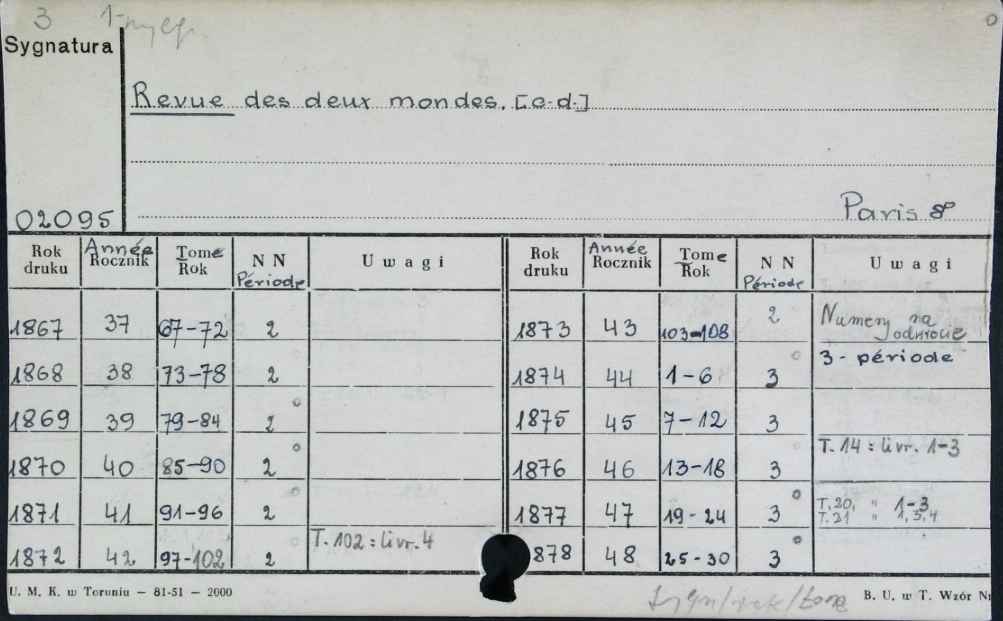 3
Sygnatura
Revue des deux mondes. [c.d.]
02095
Paris 8°
Rok druku | Année Rocznik | Tome Rok | NN Période | Uwagi | Rok druku | Année Rocznik | Tome Rok | NN Période | Uwagi
1867 | 37 | 67-72 | 2 | | 1873 | 43 | 103-108 | 2 | Numery na odwrocie
1868 | 38 | 73-78 | 2 | | 1874 | 44 | 1-6 | 3 | 3- période
1869 | 39 | 79-84 | 2 | | 1875 | 45 | 7-12 | 3 |
1870 | 40 | 85-90 | 2 | | 1876 | 46 | 13-18 | 3 | T. 14 = livr. 1-3
1871 | 41 | 91-96 | 2 | | 1877 | 47 | 19-24 | 3 | T. 20, " 1-3 T. 21 " 1, 3, 4
1872 | 42 | 97-102 | 2 | T. 102 = livr. 4 | 1878 | 48 | 25-30 | 3 |
U. M. K. w Toruniu – 81-51 – 2000
B. U. w T. Wzór Nr